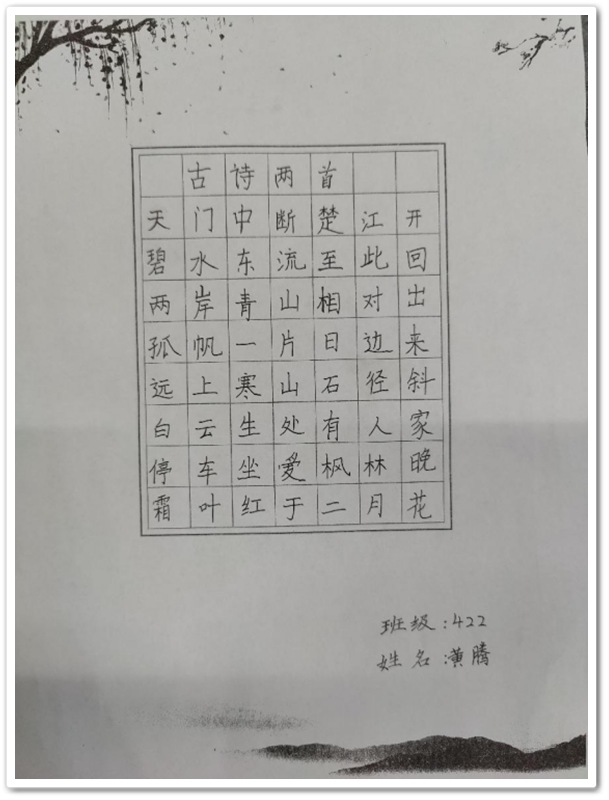 古诗两首
天门中断楚江开
碧水东流至此回
两岸青山相对出
孤帆一片日边来
远上寒山石径斜
白云生处有人家
停车坐爱枫林晚
霜叶红于二月花
班级:422
姓名:黄腾